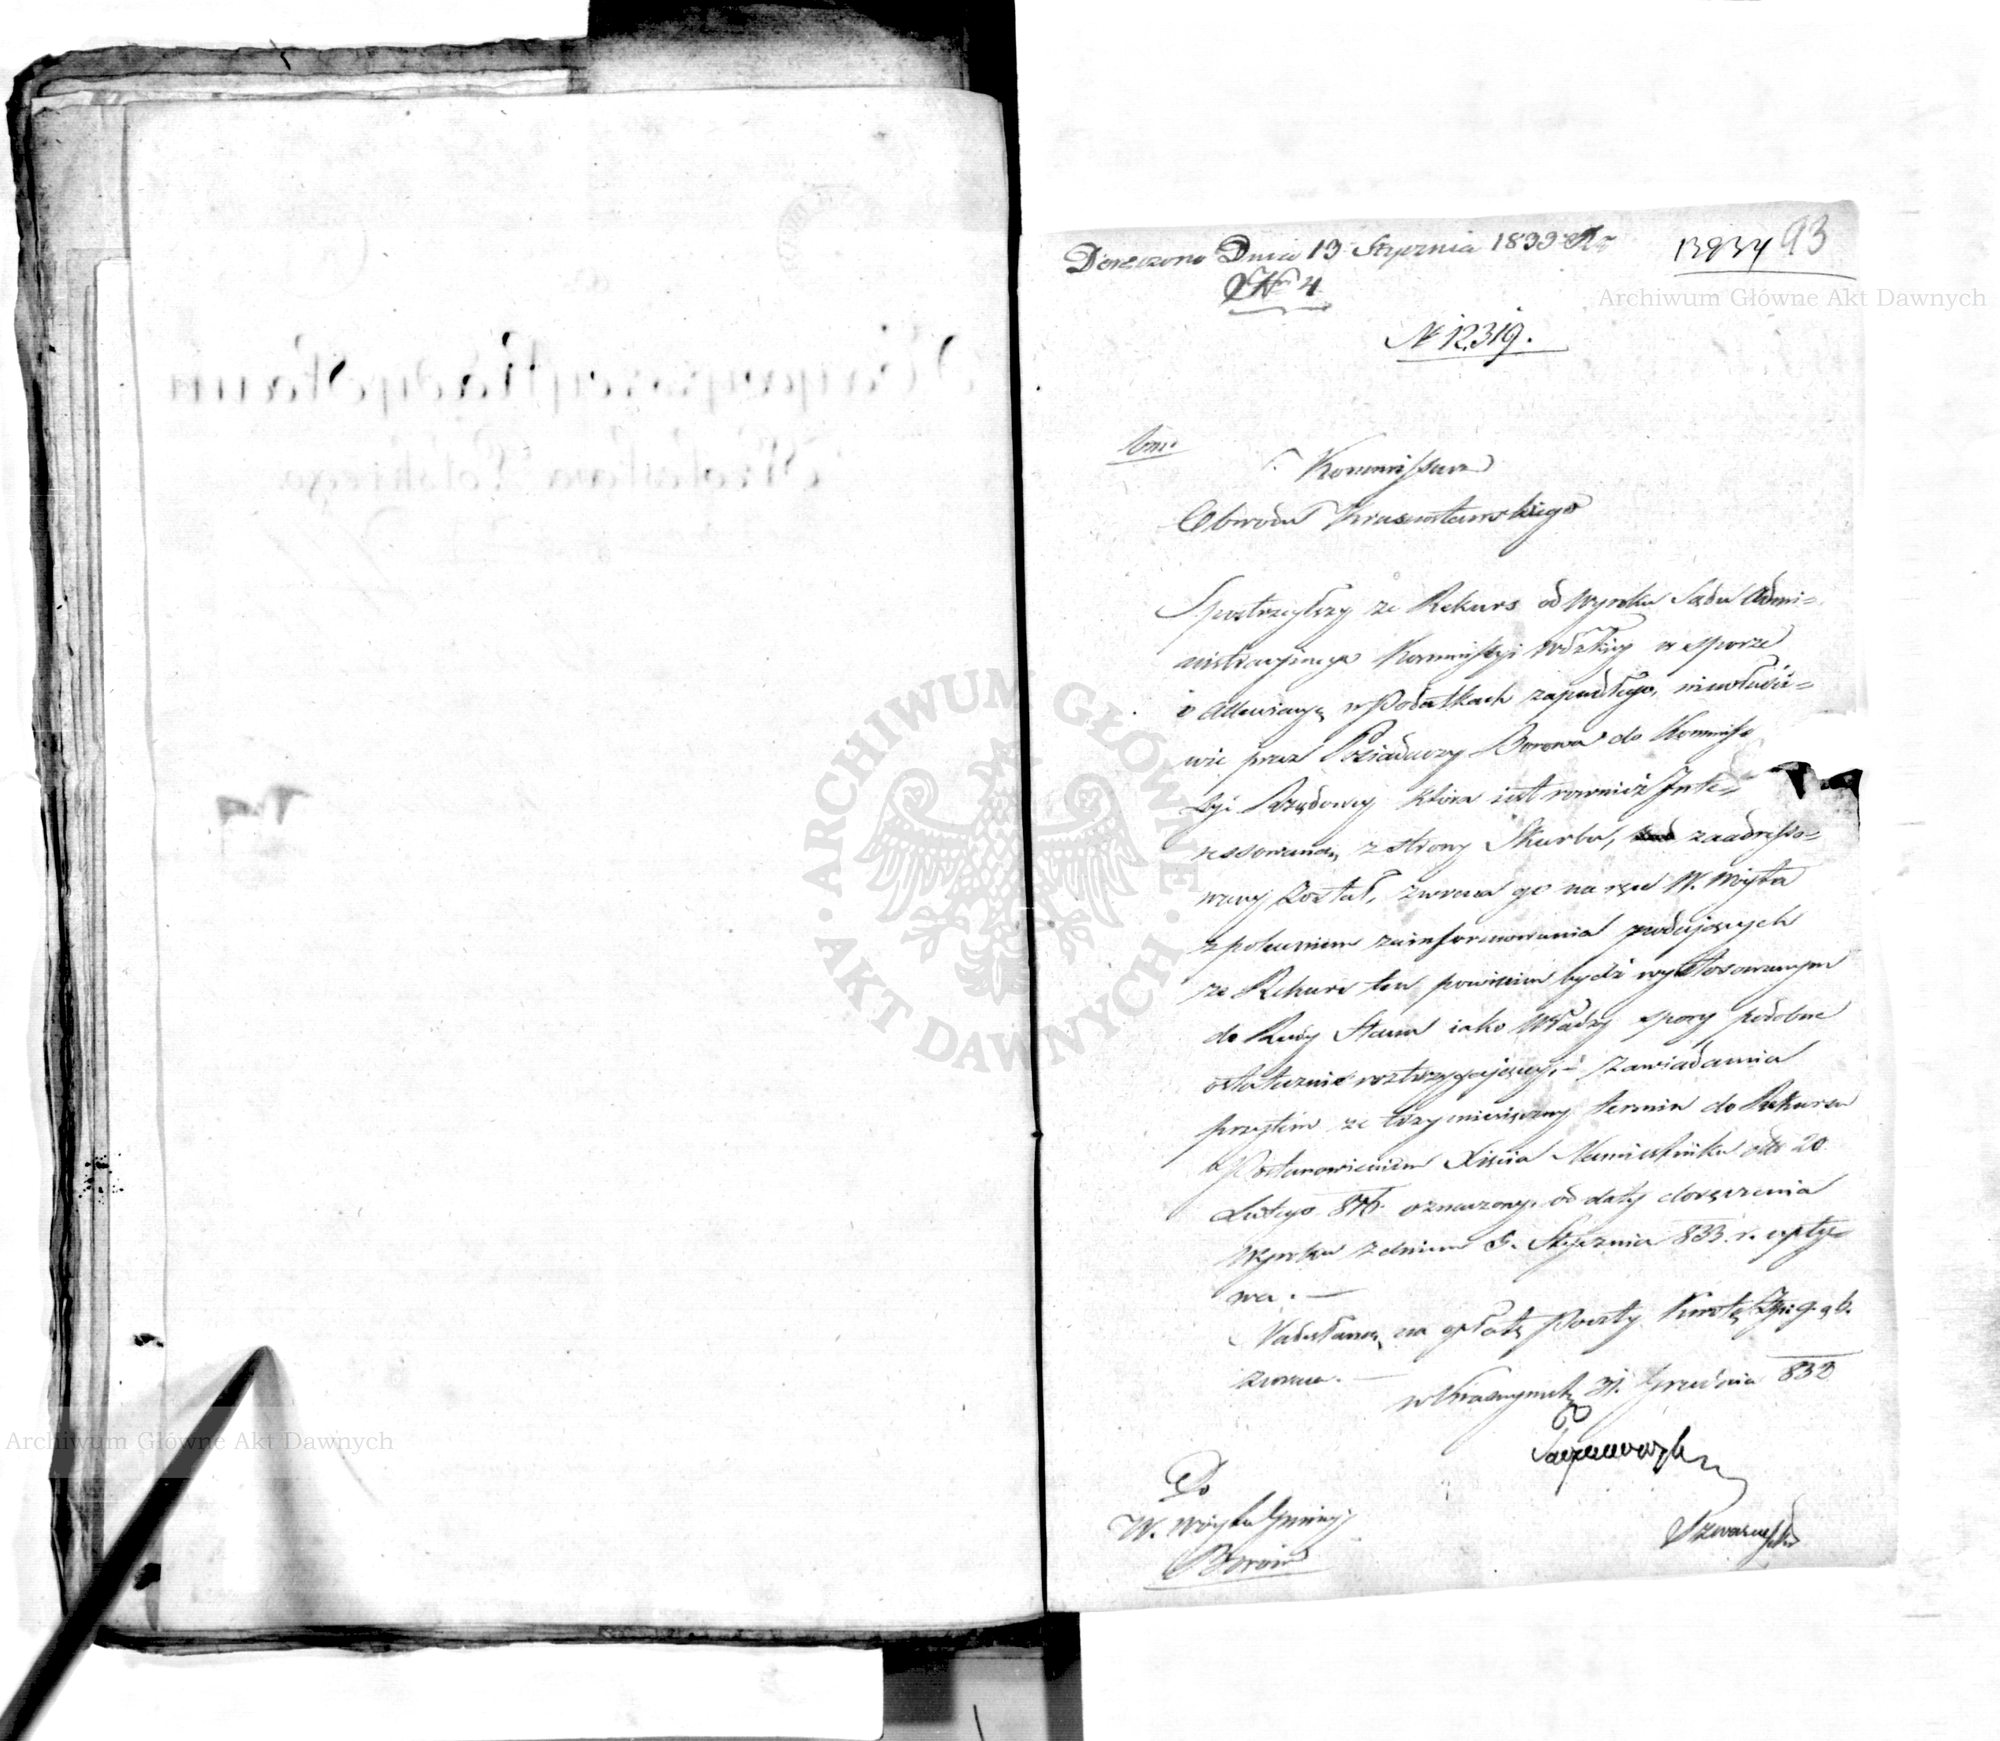 Doręczono Dnia 13 Stycznia 1833 R
13934 93
N 4
N 12319.
Kommissarz
Obwodu Krasnostawskiego
Spostrzegłszy że Rekurs od Wyroku Sądu Admi=
nistracyjnego Kommissyi Wdzkiey w sporze
o Allewiacyą w Podatkach zapadłego, niewłaści=
wie przez Posiadaczy Borowa do Kommis
syi Rządowey która iest również Inte=
ressowaną z strony Skarbu, zaadresso=
wany został, zwraca go na ręce W. Woyta
z poleceniem zainformowania podających
że Rekurs ten powinien bydź wystosowanym
do Rady Stanu iako Władzy spory podobne
ostatecznie roztrzygającey,- Zawiadamia
przytém że trzymiesięczny termin do Rekursu
Postanowieniem Xięcia Namiestnika dtto 20
Lutego 816 oznaczony, od daty doręczenia
Wyroku z dniem 5. Stycznia 833. r. upły=
wa. —
Nadesłaną na opłatę Poczty Kwotę g. 96.
zwraca. —
w Krasnymst. 31. Grudnia 832
Do
W. Woyta Gminy
Borów
Archiwum Główne Akt Dawnych
ARCHIWUM GŁÓWNE · AKT DAWNYCH ·
Archiwum Główne Akt Dawnych